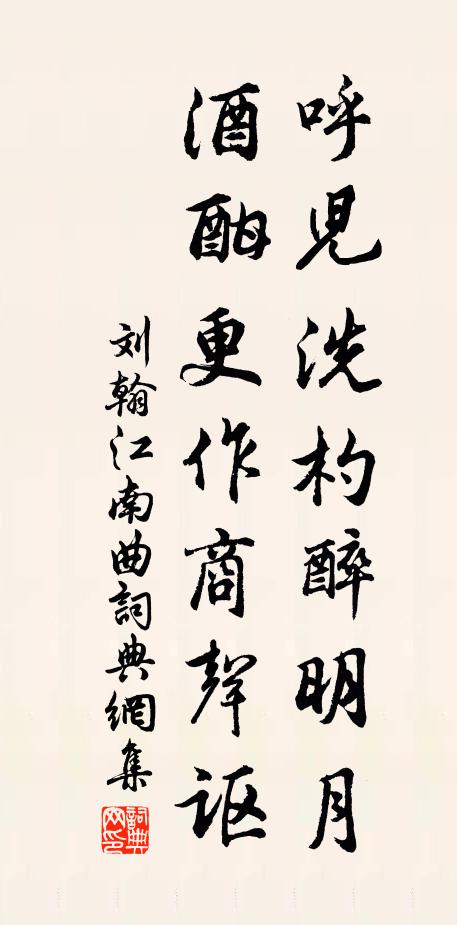 呼児洗杓醉明月
酒酣更作商聲讴
刘翰江南曲詞典網集
詞典網印